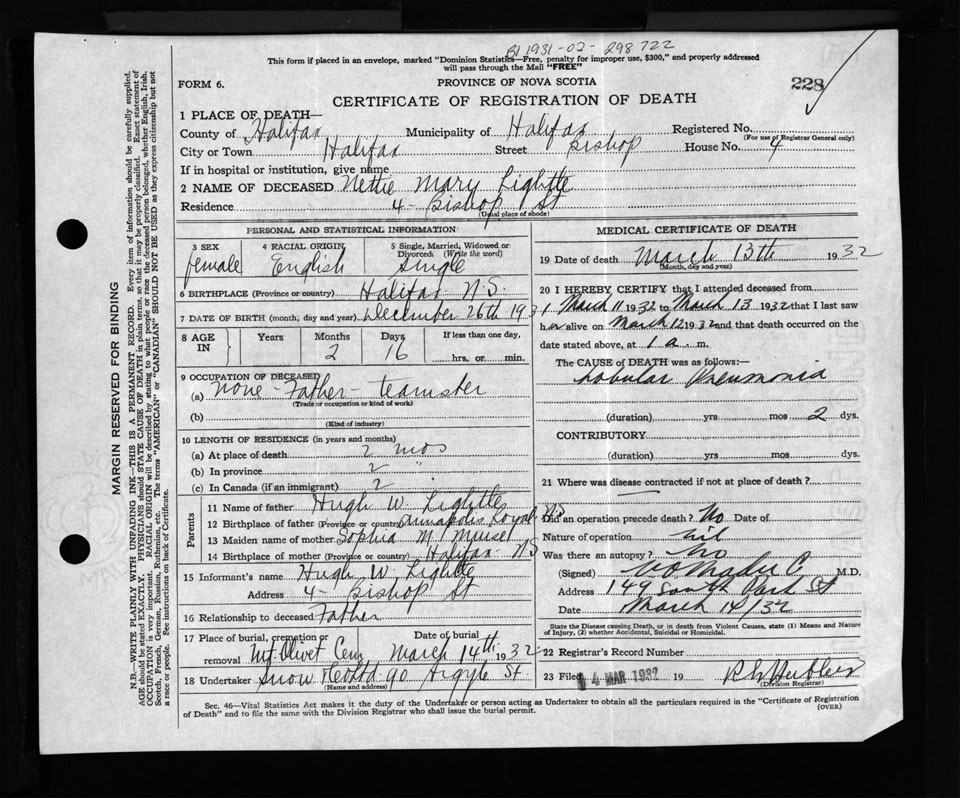 B1 1931-02-298722
This form if placed in an envelope, marked "Dominion Statistics—Free, penalty for improper use, $300," and properly addressed
will pass through the Mail "FREE"
FORM 6.
PROVINCE OF NOVA SCOTIA
228
CERTIFICATE OF REGISTRATION OF DEATH
1 PLACE OF DEATH—
County of Halifax Municipality of Halifax Registered No.
(For use of Registrar General only)
City or Town Halifax Street Bishop House No. 4
If in hospital or institution, give name
2 NAME OF DECEASED Nettie Mary Lightle
Residence 4 - Bishop St
(Usual place of abode)
PERSONAL AND STATISTICAL INFORMATION
3 SEX female
4 RACIAL ORIGIN English
5 Single, Married, Widowed or Divorced. (Write the word) Single
6 BIRTHPLACE (Province or country) Halifax N.S.
7 DATE OF BIRTH (month, day and year) December 26th 1931
8 AGE IN Years Months 2 Days 16 If less than one day, hrs. or min.
9 OCCUPATION OF DECEASED
(a) None - Father - teamster
(Trade or occupation or kind of work)
(b)
(Kind of industry)
10 LENGTH OF RESIDENCE (in years and months)
(a) At place of death 2 mos
(b) In province 2 "
(c) In Canada (if an immigrant) 2 "
Parents
11 Name of father Hugh W. Lightle
12 Birthplace of father (Province or country) Annapolis Royal N.S
13 Maiden name of mother Sophia M. Muise
14 Birthplace of mother (Province or country) Halifax - N.S
15 Informant's name Hugh W. Lightle
Address 4 - Bishop St
16 Relationship to deceased Father
17 Place of burial, cremation or removal Mt. Olivet Cem
Date of burial March 14th 1932
18 Undertaker Snow & Co Ltd 90 Argyle St.
(Name and address)
MEDICAL CERTIFICATE OF DEATH
19 Date of death March 13th 1932
(Month, day and year)
20 I HEREBY CERTIFY that I attended deceased from
March 11 1932 to March 13 1932 that I last saw
h er alive on March 12 1932 and that death occurred on the
date stated above, at 1 a. m.
The CAUSE OF DEATH was as follows:—
Lobular Pneumonia
(duration) yrs mos 2 dys.
CONTRIBUTORY
(duration) yrs mos dys.
21 Where was disease contracted if not at place of death?
Did an operation precede death? No Date of
Nature of operation nil
Was there an autopsy? No
(Signed) M.D.
Address 149 South Park St
Date March 14/32
State the Disease causing Death, or in death from Violent Causes, state (1) Means and Nature
of Injury, (2) whether Accidental, Suicidal or Homicidal.
22 Registrar's Record Number
23 Filed 14 MAR 1932 19
(Division Registrar)
Sec. 46—Vital Statistics Act makes it the duty of the Undertaker or person acting as Undertaker to obtain all the particulars required in the "Certificate of Registration
of Death" and to file the same with the Division Registrar who shall issue the burial permit.
(OVER)
MARGIN RESERVED FOR BINDING
N.B.—WRITE PLAINLY WITH UNFADING INK—THIS IS A PERMANENT RECORD. Every item of information should be carefully supplied.
AGE should be stated EXACTLY. PHYSICIANS should STATE CAUSE OF DEATH in plain terms, so that it may be properly classified. Exact statement of
OCCUPATION is very important. RACIAL ORIGIN will be described by stating to what people or race the deceased person belonged, whether English, Irish,
Scotch, French, German, Russian, Ruthenian, etc. The terms "AMERICAN" or "CANADIAN" SHOULD NOT BE USED as they express citizenship but not
a race or people. See instructions on back of Certificate.